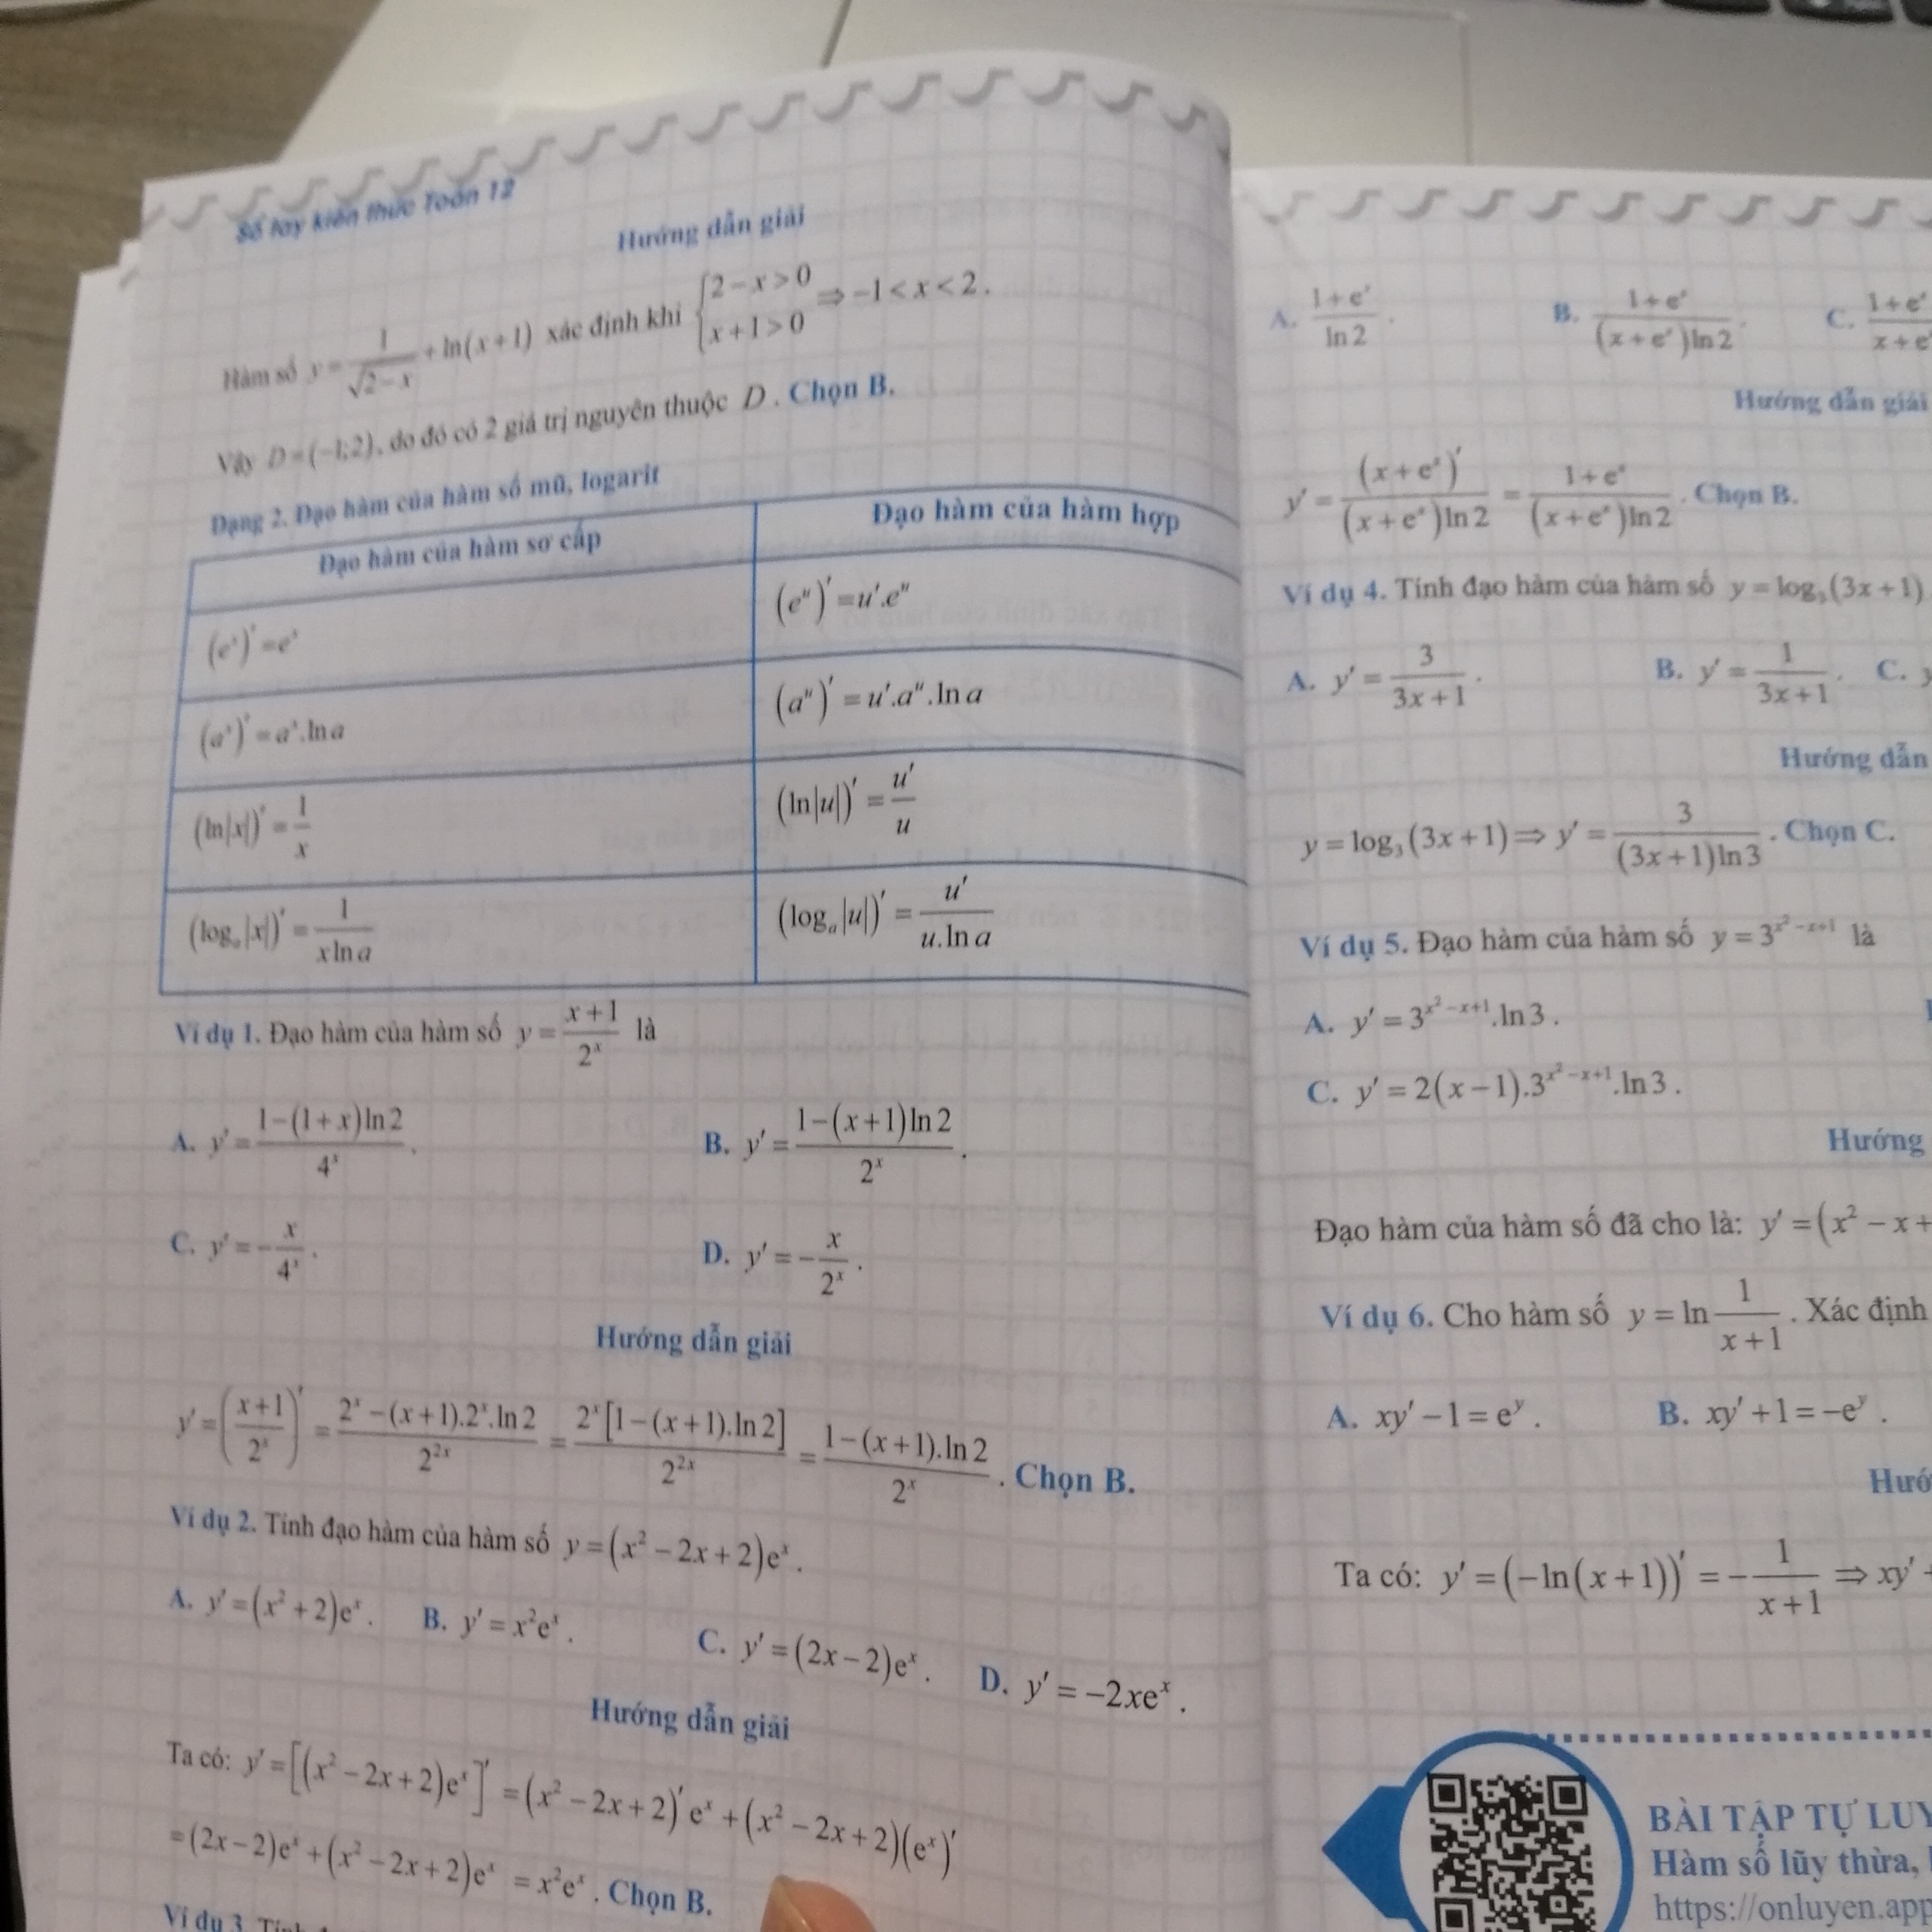 Sổ tay kiến thức Toán 12
Hướng dẫn giải
Hàm số y = 1/√(2−x) + ln(x+1) xác định khi {2−x>0; x+1>0 ⇒ −1<x<2.
Vậy D=(−1;2), do đó có 2 giá trị nguyên thuộc D. Chọn B.
Dạng 2. Đạo hàm của hàm số mũ, logarit
Đạo hàm của hàm sơ cấp Đạo hàm của hàm hợp
(eˣ)′=eˣ (eᵘ)′=u′.eᵘ
(aˣ)′=aˣ.ln a (aᵘ)′=u′.aᵘ.ln a
(ln|x|)′=1/x (ln|u|)′=u′/u
(logₐ|x|)′=1/(x ln a) (logₐ|u|)′=u′/(u.ln a)
Ví dụ 1. Đạo hàm của hàm số y=(x+1)/2ˣ là
A. y′=(1−(1+x)ln2)/4ˣ. B. y′=(1−(x+1)ln2)/2ˣ.
C. y′=−x/4ˣ. D. y′=−x/2ˣ.
Hướng dẫn giải
y′=((x+1)/2ˣ)′=(2ˣ−(x+1).2ˣ.ln2)/2²ˣ=(2ˣ[1−(x+1).ln2])/2²ˣ=(1−(x+1).ln2)/2ˣ. Chọn B.
Ví dụ 2. Tính đạo hàm của hàm số y=(x²−2x+2)eˣ.
A. y′=(x²+2)eˣ. B. y′=x²eˣ. C. y′=(2x−2)eˣ. D. y′=−2xeˣ.
Hướng dẫn giải
Ta có: y′=[(x²−2x+2)eˣ]′=(x²−2x+2)′eˣ+(x²−2x+2)(eˣ)′
=(2x−2)eˣ+(x²−2x+2)eˣ=x²eˣ. Chọn B.
Ví dụ 3.
A. (1+eˣ)/ln2. B. (1+eˣ)/((x+eˣ)ln2). C. (1+eˣ)/(x+e
Hướng dẫn giải
y′=(x+eˣ)′/((x+eˣ)ln2)=(1+eˣ)/((x+eˣ)ln2). Chọn B.
Ví dụ 4. Tính đạo hàm của hàm số y=log₃(3x+1)
A. y′=3/(3x+1). B. y′=1/(3x+1). C.
Hướng dẫn
y=log₃(3x+1)⇒y′=3/((3x+1)ln3). Chọn C.
Ví dụ 5. Đạo hàm của hàm số y=3^(x²−x+1) là
A. y′=3^(x²−x+1).ln3.
C. y′=2(x−1).3^(x²−x+1).ln3.
Hướng
Đạo hàm của hàm số đã cho là: y′=(x²−x+
Ví dụ 6. Cho hàm số y=ln 1/(x+1). Xác định
A. xy′−1=eʸ. B. xy′+1=−eʸ.
Ta có: y′=(−ln(x+1))′=−1/(x+1)⇒xy′
BÀI TẬP TỰ LUY
Hàm số lũy thừa,
https://onluyen.app